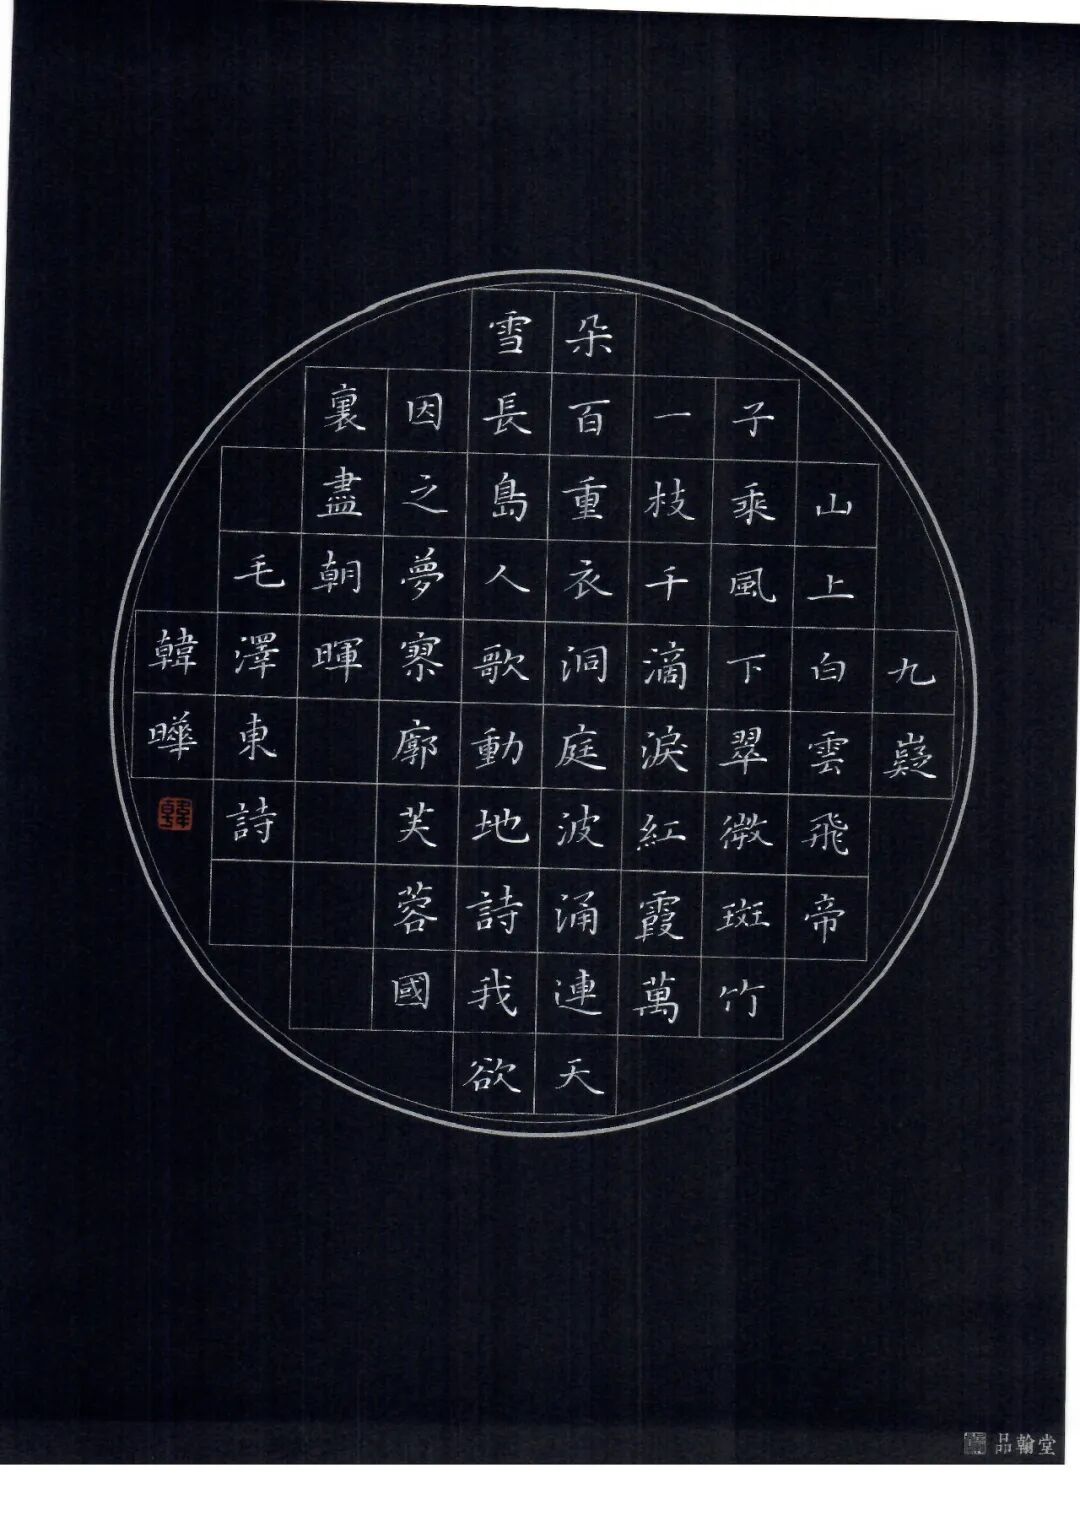 九嶷
山上白雲飛帝
子乘風下翠微斑竹
一枝千滴淚紅霞萬
朵百重衣洞庭波涌連天
雪長島人歌動地詩我欲
因之夢寥廓芙蓉國
裏盡朝暉
毛澤東詩
韓曄
韓
品翰堂